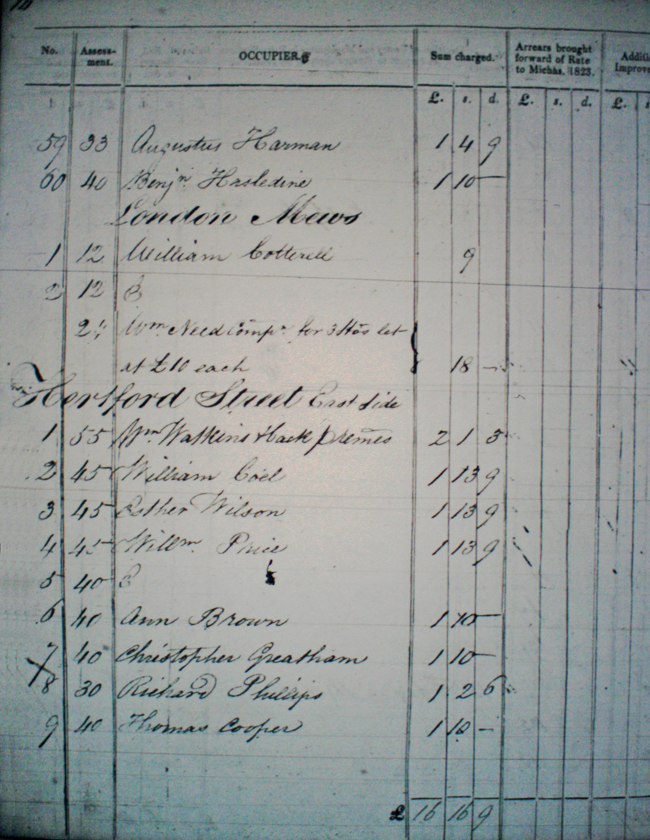 No. Assess-ment. OCCUPIERS Sum charged. Arrears brought forward of Rate to Michas. 1823. Additi Improve
£. s. d. £. s. d. £ s
59 33 Augustus Harman 1 4 9
60 40 Benjn Hasledine 1 10 —
London Mews
1 12 William Cotterell 9
2 12 E
Wm Need Compr for 3 Hos let
at £10 each 18 —
Hertford Street East Side
1 55 Wm Watkins & back premes 2 1 3
2 45 William Coel 1 13 9
3 45 Esther Wilson 1 13 9
4 45 Willm Price 1 13 9
5 40 E
6 40 Ann Brown 1 10 —
7 40 Christopher Greatham 1 10 —
8 30 Richard Phillips 1 2 6
9 40 Thomas Cooper 1 10 —
£ 16 16 9